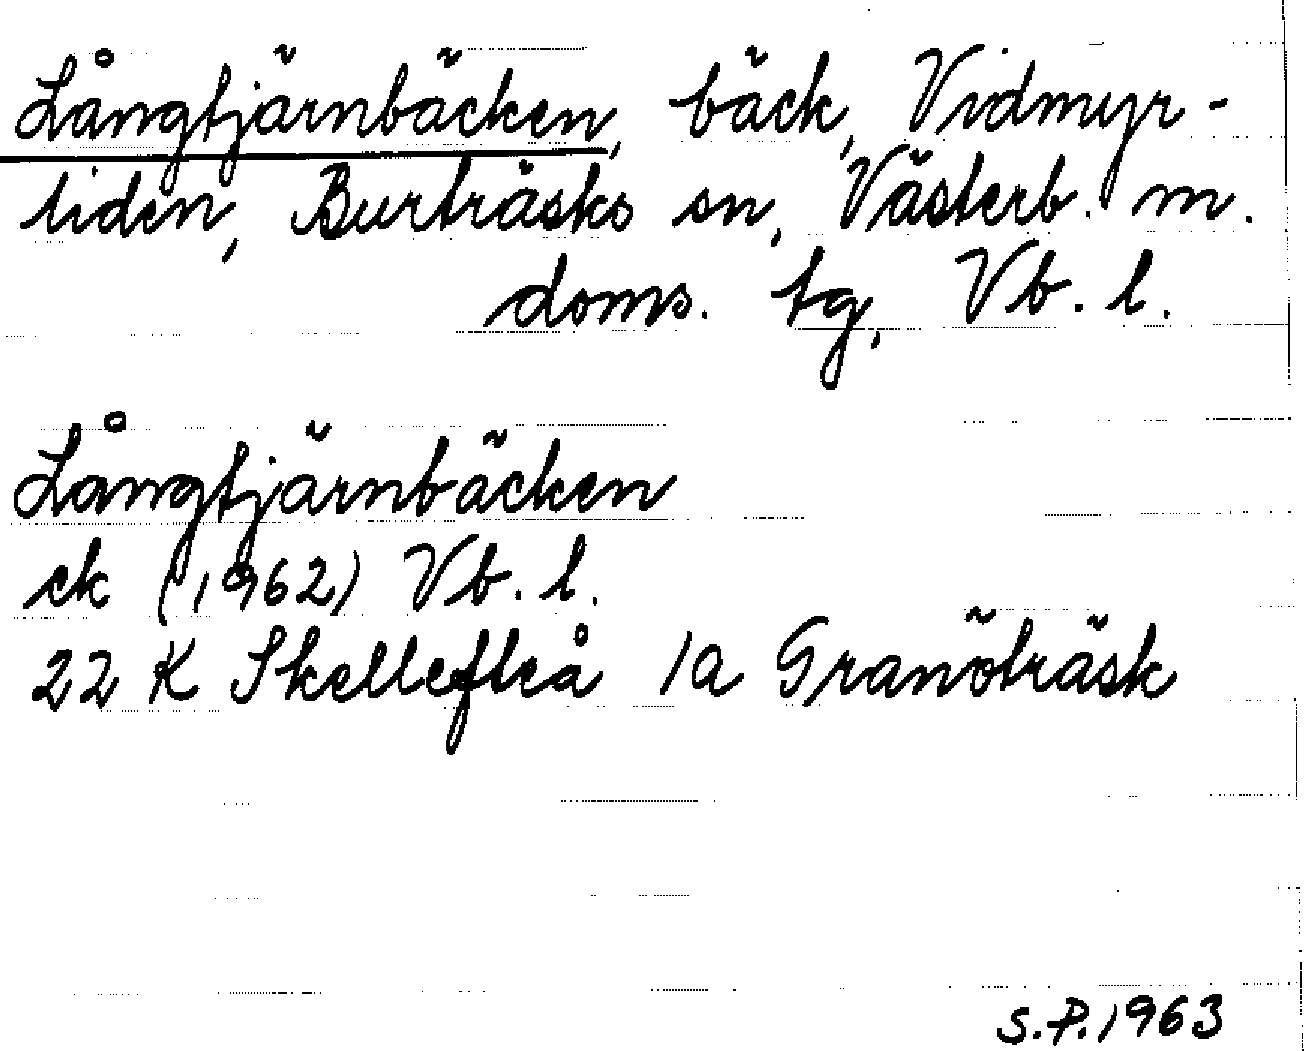 Långtjärnbäcken, bäck, Vidmyr-
liden, Burträsks sn, Västerb. m.
doms. tg, Vb. l.
Långtjärnbäcken
ek (1962) Vb. l.
22 K Skellefteå 1a Granöträsk
S.P. 1963